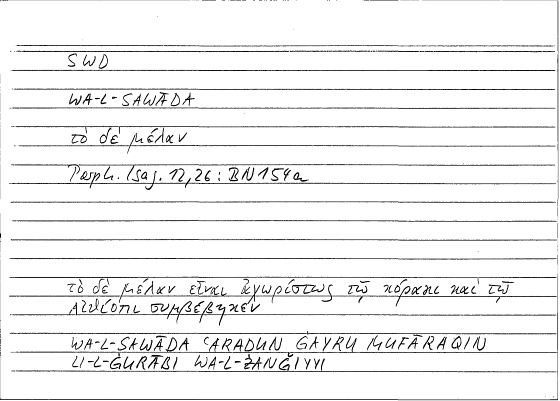 SWD
WA-L-SAWĀDA
τὸ δὲ μέλαν
Porph. Isag. 12,26: BN 154a
τὸ δὲ μέλαν εἶναι ἀχωρίστως τῷ κόρακι καὶ τῷ
Αἰθίοπι συμβέβηκεν
WA-L-SAWĀDA ʿARADUN ĠAYRU MUFĀRAQIN
LI-L-ĠURĀBI WA-L-ZANĞIYYI